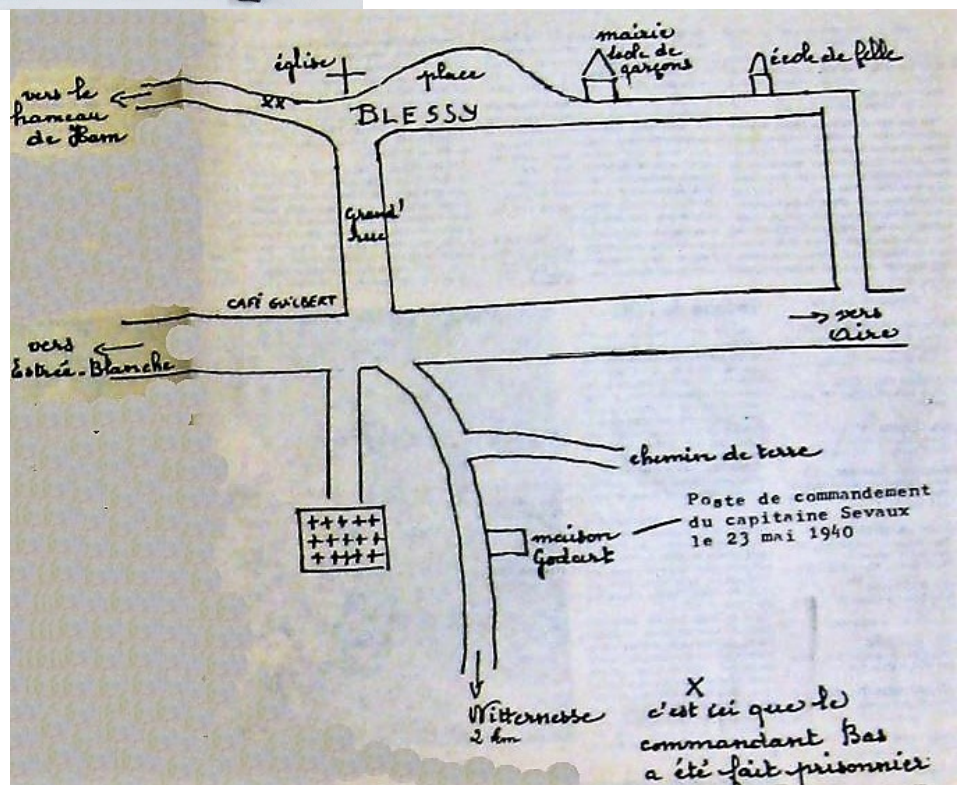 mairie
école de
garçons
église
place
école de fille
vers le
hameau
de Ham
xx
BLESSY
Grand'
rue
CAFÉ GUILBERT
vers
Aire
vers
Estrée-Blanche
chemin de terre
Poste de commandement
du capitaine Sevaux
le 23 mai 1940
maison
Godart
Witternesse
2 km
X
c'est ici que le
commandant Bas
a été fait prisonnier